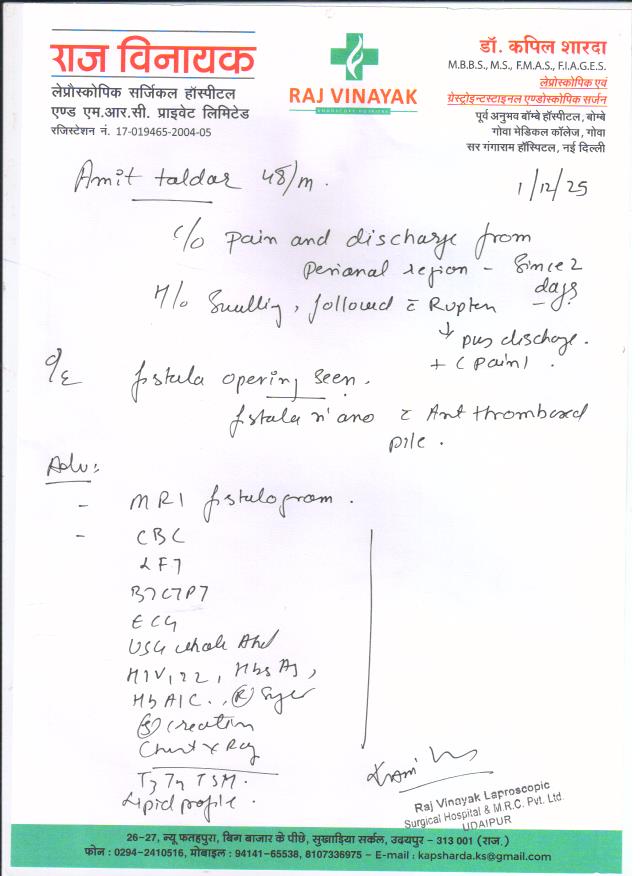 राज विनायक
लेप्रोस्कोपिक सर्जिकल हॉस्पीटल
एण्ड एम.आर.सी. प्राइवेट लिमिटेड
रजिस्टेशन नं. 17-019465-2004-05
RAJ VINAYAK
डॉ. कपिल शारदा
M.B.B.S., M.S., F.M.A.S., F.I.A.G.E.S.
लेप्रोस्कोपिक एवं
गेस्ट्रोइन्टस्टाइनल एण्डोस्कोपिक सर्जन
पूर्व अनुभव बॉम्बे हॉस्पीटल, बोम्बे
गोवा मेडिकल कॉलेज, गोवा
सर गंगाराम हॉस्पिटल, नई दिल्ली
Amit taldar 48/m.
1/12/25
c/o pain and discharge from
perianal region - since 2
days
H/o Swelling, followed c̄ Rupture
↓ pus discharge.
+ (pain).
O/E fistula opening seen.
fistula in ano c̄ Ant thrombosed
pile.
Adv:
- MRI fistulogram.
- CBC
LFT
BT CT PT
ECG
USG whole Abd
HIV 1, 2, HbsAg,
HbA1C., (R) Sugar
(S) Creatinin
Chest X Ray
T3 T4 TSH.
Lipid profile.
Raj Vinayak Laproscopic
Surgical Hospital & M.R.C. Pvt. Ltd.
UDAIPUR
26-27, न्यू फतहपुरा, बिग बाजार के पीछे, सुखाड़िया सर्कल, उदयपुर - 313 001 (राज.)
फोन : 0294-2410516, मोबाइल : 94141-65538, 8107336975 - E-mail : kapsharda.ks@gmail.com